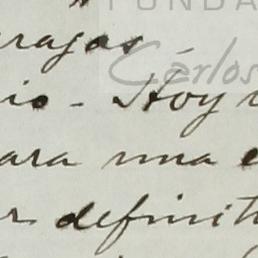 FUNDA
Carlos
rajas
io - Hoy
ara una e
r definit